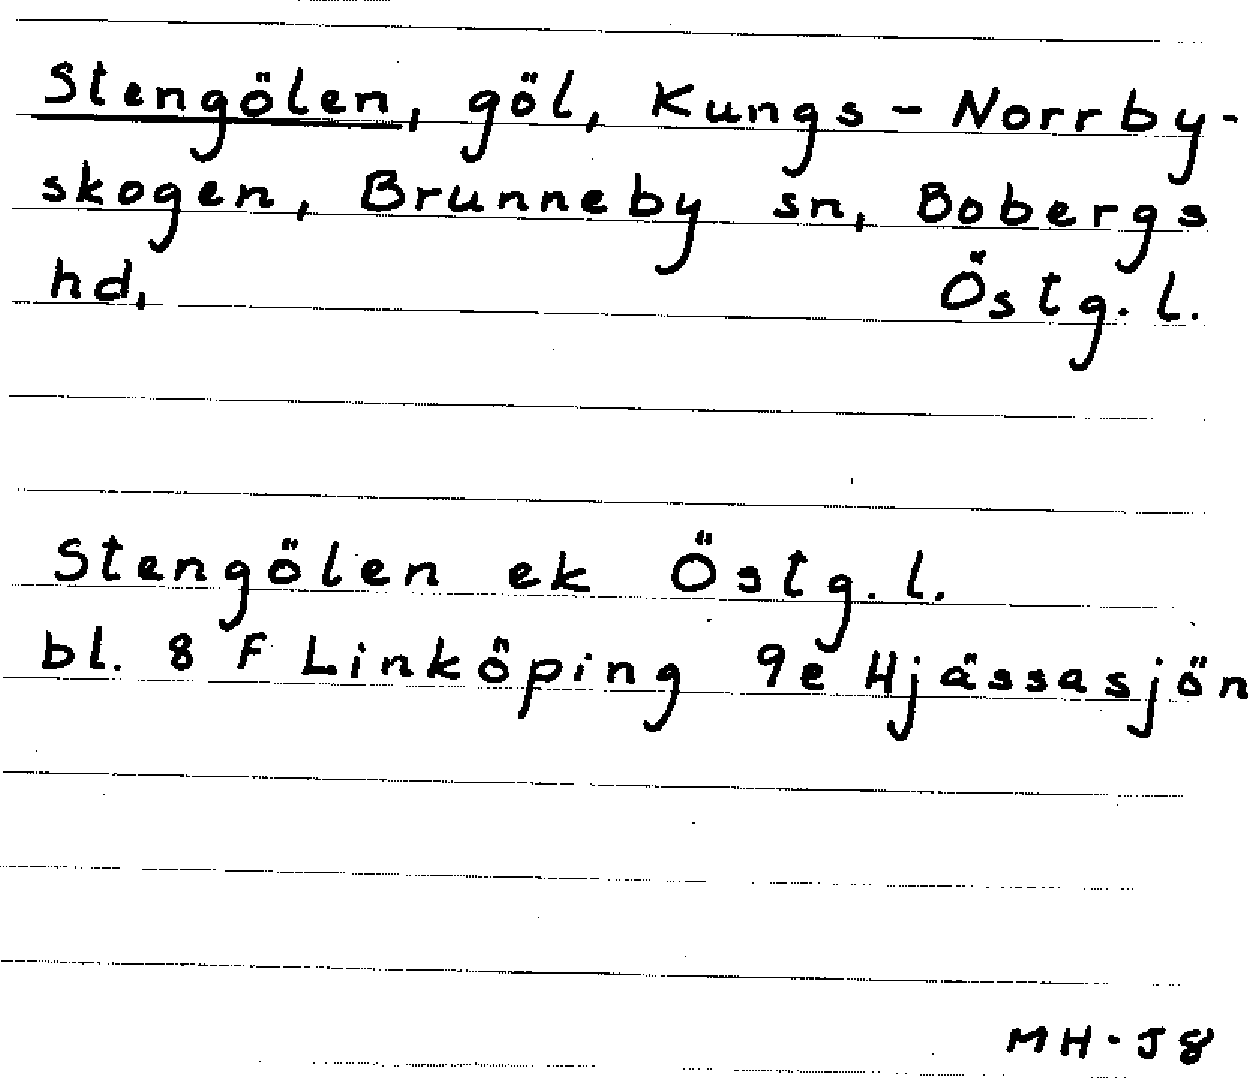 Stengölen, göl, Kungs-Norrby-
skogen, Brunneby sn, Bobergs
hd, Östg.l.
Stengölen ek Östg.l.
bl. 8 F Linköping 9e Hjässasjön
MH-J8